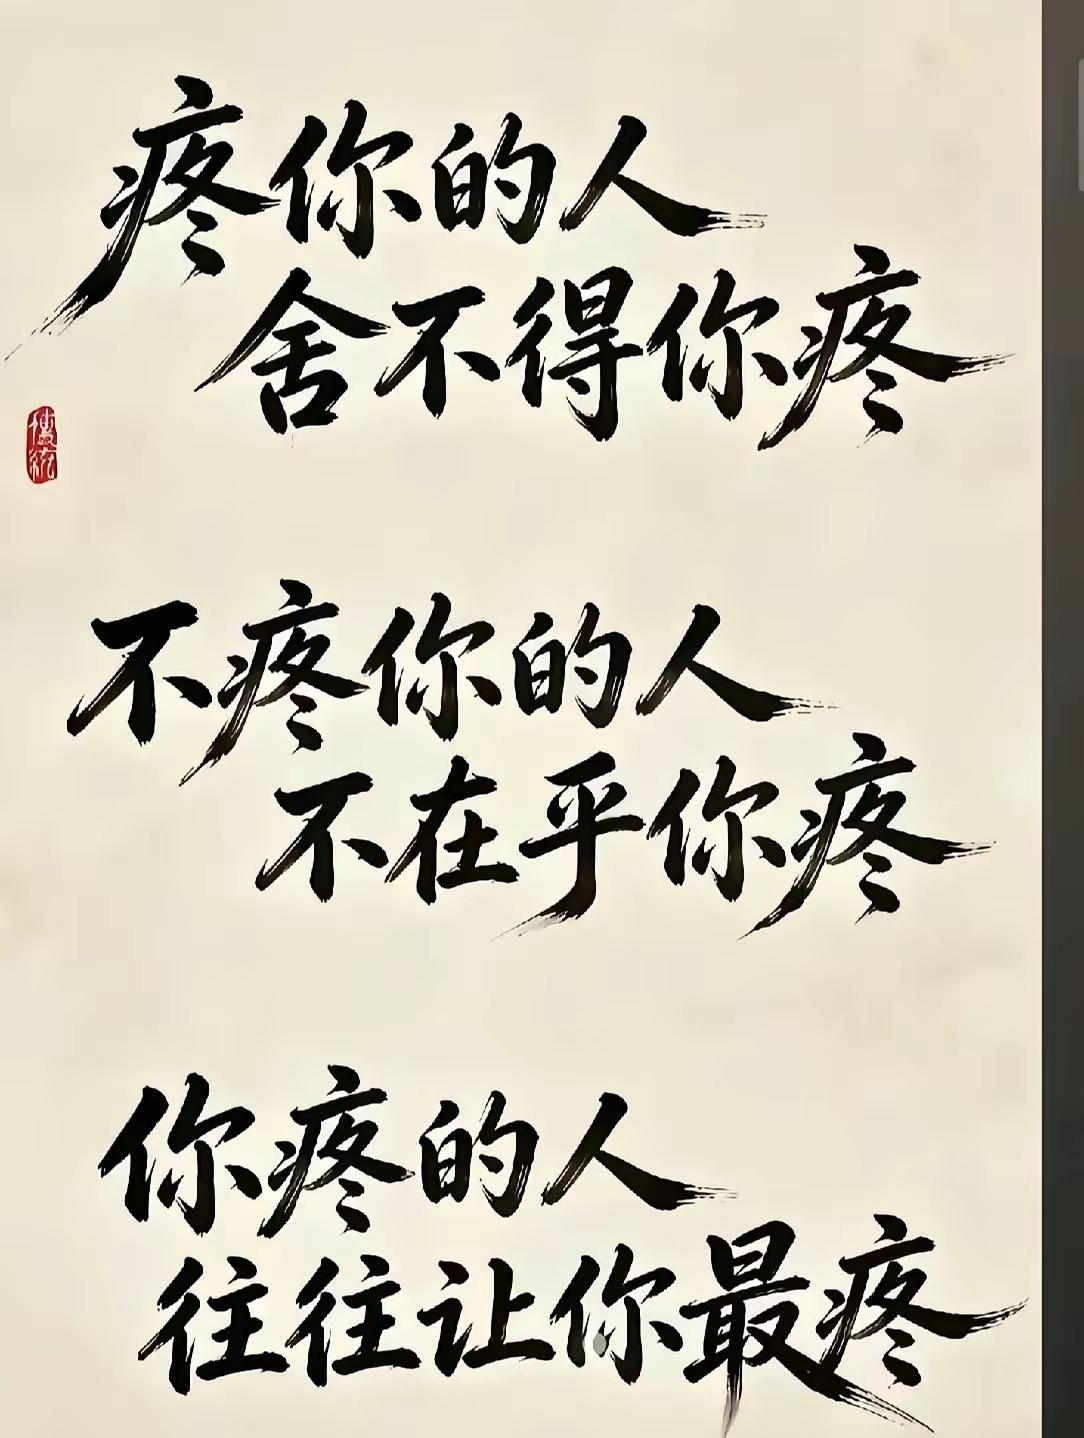 疼你的人
舍不得你疼
傳統
不疼你的人
不在乎你疼
你疼的人
往往让你最疼